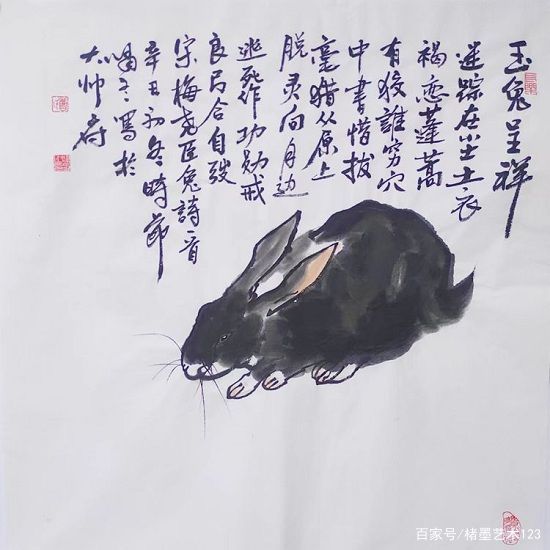 玉兔呈祥
迷踪在尘土衣
褐恋蓬蒿
有狡誰穷穴
中書惜拔
毫猎从原上
脱灵向月边
逃死作功勋戒
良弓合自弢
宋梅尧臣兔詩一首
辛丑初冬時節
寫於
大帅府
百家号/楮墨艺术123